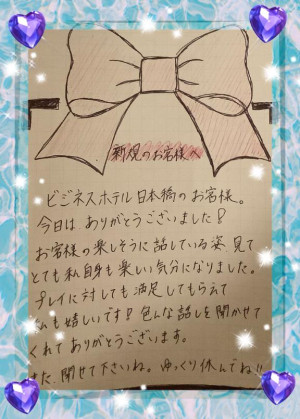 新規のお客様へ
ビジネスホテル日本橋のお客様。
今日は、ありがとうございました!
お客様の楽しそうに話している姿、見て
とても私自身も楽しい気分になりました。
プレイに対しても満足してもらえて
私も嬉しいです!色んな話しを聞かせて
くれてありがとうございます。
また、聞せて下さいね。ゆっくり休んでね!!